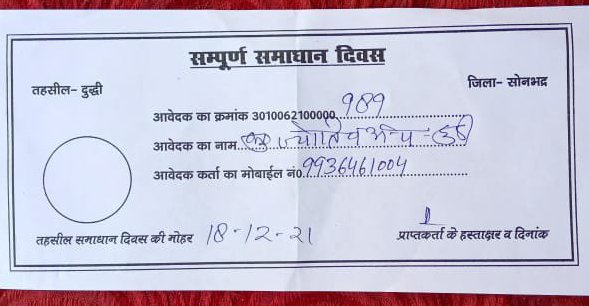 सम्पूर्ण समाधान दिवस
तहसील- दुद्धी
जिला- सोनभद्र
आवेदक का क्रमांक 3010062100000 989
आवेदक का नाम
आवेदक कर्ता का मोबाईल नं0. 9936461004
तहसील समाधान दिवस की मोहर 18-12-21
प्राप्तकर्ता के हस्ताक्षर व दिनांक